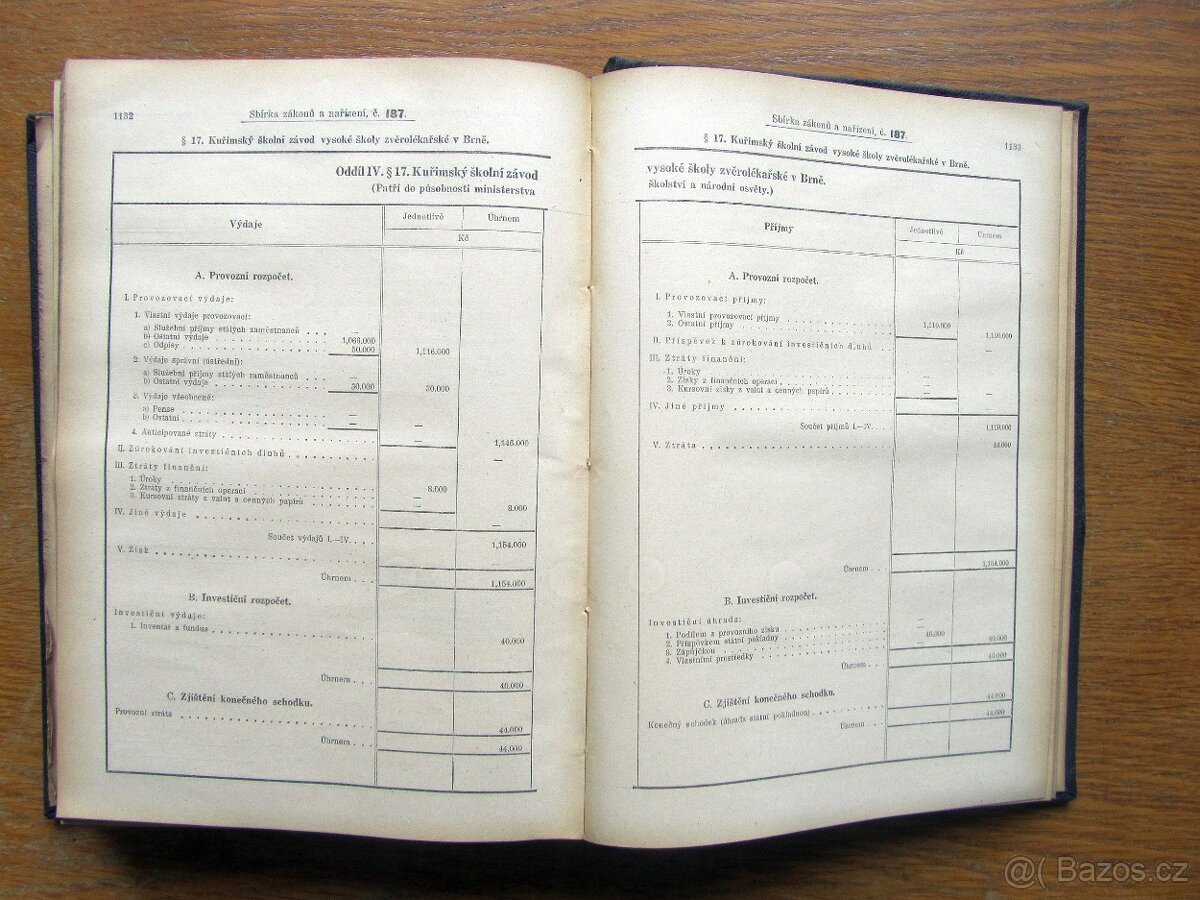 1132
Sbírka zákonů a nařízení, č. 187.
§ 17. Kuřimský školní závod vysoké školy zvěrolékařské v Brně.
Oddíl IV. § 17. Kuřimský školní závod
(Patří do působnosti ministerstva
Výdaje Jednotlivě Úhrnem
Kč
A. Provozní rozpočet.
I. Provozovací výdaje:
1. Vlastní výdaje provozovací:
a) Služební příjmy stálých zaměstnanců . . . . —
b) Ostatní výdaje . . . . 1,066.000
c) Odpisy . . . . 50.000 1,116.000
2. Výdaje správní (ústřední):
a) Služební příjmy stálých zaměstnanců . . . . —
b) Ostatní výdaje . . . . 30.000 30.000
3. Výdaje všeobecné:
a) Pense . . . . —
b) Ostatní . . . . — —
4. Anticipované ztráty . . . . — 1,146.000
II. Zúrokování investičních dluhů . . . . —
III. Ztráty finanční:
1. Úroky . . . . 8.000
2. Ztráty z finančních operací . . . . —
3. Kursovní ztráty z valut a cenných papírů . . . . — 8.000
IV. Jiné výdaje . . . . —
Součet výdajů I.—IV. . . . 1,154.000
V. Zisk . . . . —
Úhrnem . . . 1,154.000
B. Investiční rozpočet.
Investiční výdaje:
1. Inventář a fundus . . . . 40.000
Úhrnem . . . . 40.000
C. Zjištění konečného schodku.
Provozní ztráta . . . . 44.000
Úhrnem . . . . 44.000
Sbírka zákonů a nařízení, č. 187.
1133
§ 17. Kuřimský školní závod vysoké školy zvěrolékařské v Brně.
vysoké školy zvěrolékařské v Brně.
školství a národní osvěty.)
Příjmy Jednotlivě Úhrnem
Kč
A. Provozní rozpočet.
I. Provozovací příjmy:
1. Vlastní provozovací příjmy . . . . 1,110.000
2. Ostatní příjmy . . . . — 1,110.000
II. Příspěvek k zúrokování investičních dluhů . . —
III. Ztráty finanční:
1. Úroky . . . . —
2. Zisky z finančních operací . . . . —
3. Kursovní zisky z valut a cenných papírů . . . . — —
IV. Jiné příjmy . . . . —
Součet příjmů I.—IV. . . . 1,110.000
V. Ztráta . . . . 44.000
Úhrnem . . . 1,154.000
B. Investiční rozpočet.
Investiční úhrada:
1. Podílem z provozního zisku . . . . —
2. Příspěvkem státní pokladny . . . . 40.000 40.000
3. Zápůjčkou . . . . —
4. Vlastními prostředky . . . . —
Úhrnem . . . . 40.000
C. Zjištění konečného schodku.
Konečný schodek (úhrada státní pokladnou) . . . . 44.000
Úhrnem . . . . 44.000
@( Bazos.cz